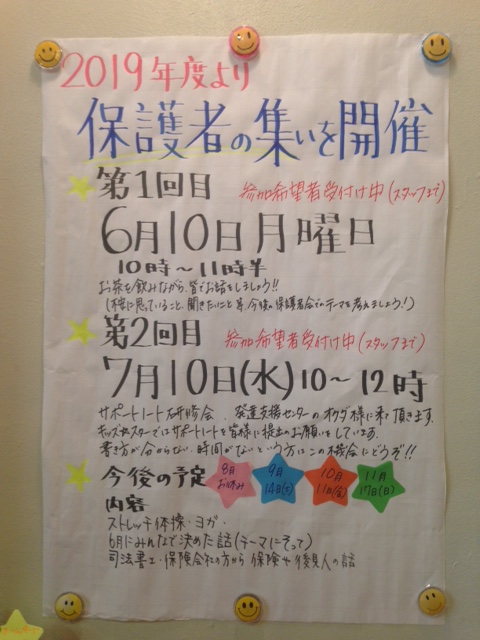 2019年度より
保護者の集いを開催
第1回目 参加希望者受付け中(スタッフまで)
6月10日月曜日
10時〜11時半
お茶を飲みながら、皆でお話をしましょう!!
(不安に思っていること、聞きたいこと等、今後の保護者会のテーマを考えましょう!)
第2回目 参加希望者受付け中(スタッフまで)
7月10日(水)10〜12時
サポートノート研修会、発達支援センターのオクダ様に来て頂きます。
キッズスターではサポートノートを皆様に提出のお願いをしています。
書き方が分からない、時間がないという方はこの機会にどうぞ!!
今後の予定 8月お休み 9月14日(土) 10月11日(金) 11月17日(日)
内容
ストレッチ体操・ヨガ・
6月にみんなで決めた話(テーマにそって)
司法書士・保険会社の方から 保険や後見人の話